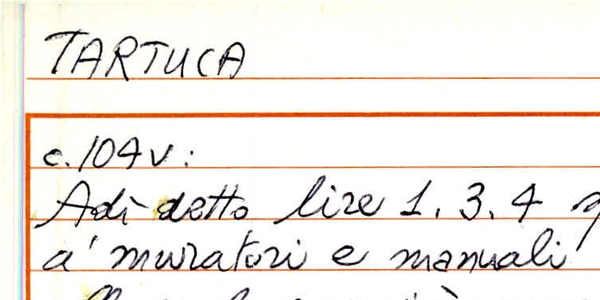 TARTUCA
c. 104 v:
Adì detto lire 1. 3. 4
a' muratori e manuali